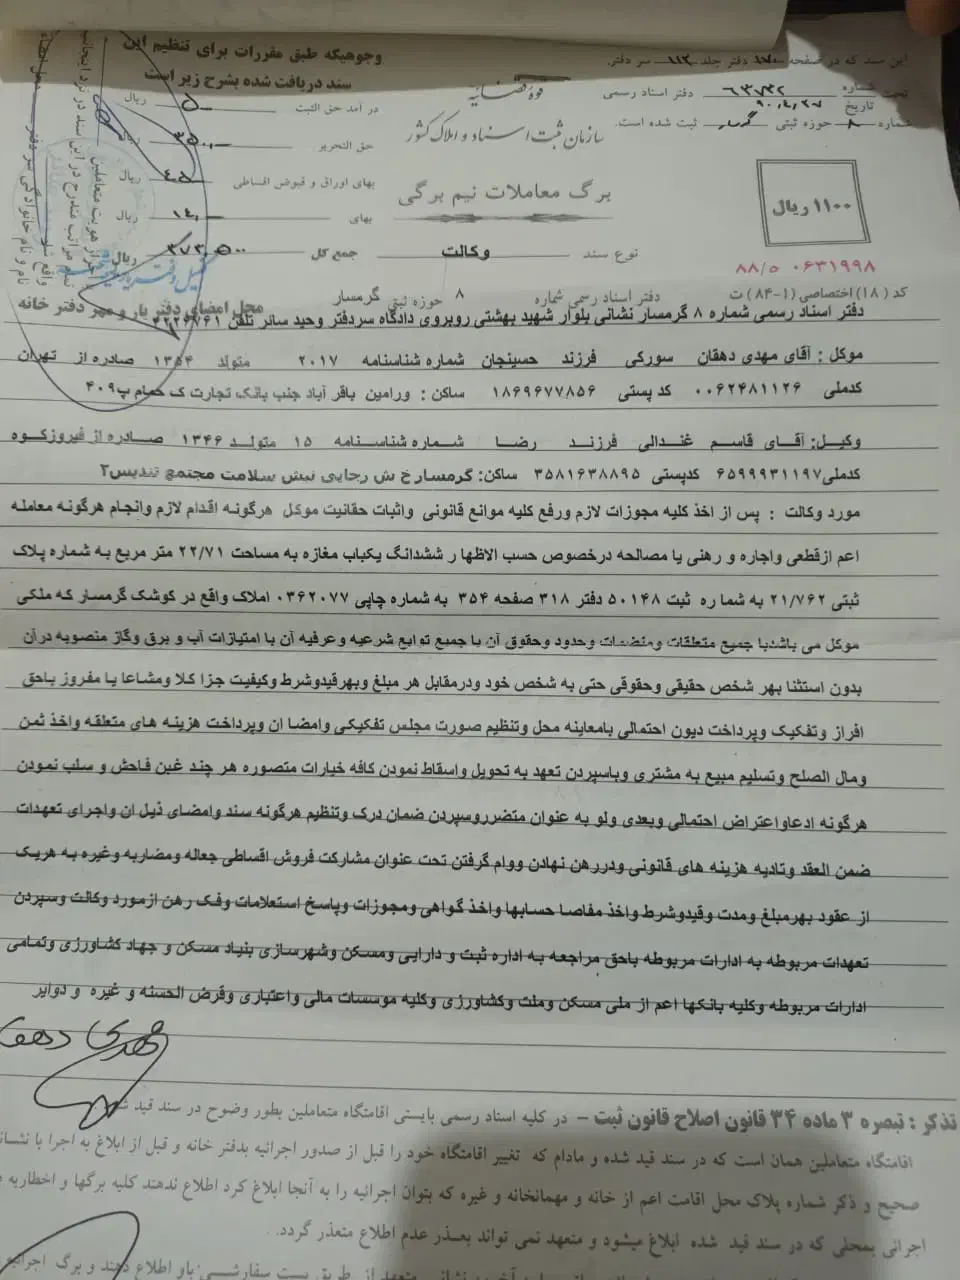 این سند که در صفحه ۱۷۰ دفتر جلد ۱۱۳ سر دفتر.
تحت شماره ۶۳۷۳۲ دفتر اسناد رسمی
تاریخ ۹۰,۴,۲۷
شماره ۸ حوزه ثبتی گرمسار ثبت شده است.
قوه قضائیه
سازمان ثبت اسناد و املاک کشور
برگ معاملات نیم برگی
نوع سند وکالت
۱۱۰۰ ریال
۸۸/۵ ۰۶۳۱۹۹۸
کد (۱۸) اختصاصی (۱-۸۴) ت
وجوهیکه طبق مقررات برای تنظیم این
سند دریافت شده بشرح زیر است
در آمد حق الثبت ریال
حق التحریر ریال
بهای اوراق و قبوض اقساطی ریال
بهای ریال
جمع کل ۳۷۳,۵۰۰ ریال
محل امضای دفتر یار و مهر دفتر خانه
دفتر اسناد رسمی شماره ۸ حوزه ثبتی گرمسار
دفتر اسناد رسمی شماره ۸ گرمسار نشانی بلوار شهید بهشتی روبروی دادگاه سردفتر وحید سائر تلفن ۴۲۲۶۷۶۱
موکل : آقای مهدی دهقان سورکی فرزند حسینجان شماره شناسنامه ۲۰۱۷ متولد ۱۳۵۴ صادره از تهران
کدملی ۰۰۶۲۴۸۱۱۲۶ کد پستی ۱۸۶۹۶۷۷۸۵۶ ساکن : ورامین باقر آباد جنب بانک تجارت ک حمام پ۴۰۹
وکیل: آقای قاسم غندالی فرزند رضا شماره شناسنامه ۱۵ متولد ۱۳۴۶ صادره از فیروزکوه
کدملی۶۵۹۹۹۳۱۱۹۷ کدپستی ۳۵۸۱۶۳۸۸۹۵ ساکن: گرمسار خ ش رجایی نبش سلامت مجتمع تندیس۲
مورد وکالت : پس از اخذ کلیه مجوزات لازم ورفع کلیه موانع قانونی واثبات حقانیت موکل هرگونه اقدام لازم وانجام هرگونه معامله
اعم ازقطعی واجاره و رهنی یا مصالحه درخصوص حسب الاظها ر ششدانگ یکباب مغازه به مساحت ۲۲/۷۱ متر مربع به شماره پلاک
ثبتی ۲۱/۷۶۲ به شما ره ثبت ۵۰۱۴۸ دفتر ۳۱۸ صفحه ۳۵۴ به شماره چاپی ۰۳۶۲۰۷۷ املاک واقع در کوشک گرمسار که ملکی
موکل می باشدبا جمیع متعلقات ومنضمات وحدود وحقوق آن با جمیع توابع شرعیه وعرفیه آن با امتیازات آب و برق وگاز منصوبه درآن
بدون استثنا بهر شخص حقیقی وحقوقی حتی به شخص خود ودرمقابل هر مبلغ وبهرقیدوشرط وکیفیت جزا کلا ومشاعا یا مفروز باحق
افراز وتفکیک وپرداخت دیون احتمالی بامعاینه محل وتنظیم صورت مجلس تفکیکی وامضا ان وپرداخت هزینه های متعلقه واخذ ثمن
ومال الصلح وتسلیم مبیع به مشتری وباسپردن تعهد به تحویل واسقاط نمودن کافه خیارات متصوره هر چند غبن فاحش و سلب نمودن
هرگونه ادعاواعتراض احتمالی وبعدی ولو به عنوان متضرروسپردن ضمان درک وتنظیم هرگونه سند وامضای ذیل ان واجرای تعهدات
ضمن العقد وتادیه هزینه های قانونی ودررهن نهادن ووام گرفتن تحت عنوان مشارکت فروش اقساطی جعاله ومضاربه وغیره به هریک
از عقود بهرمبلغ ومدت وقیدوشرط واخذ مفاصا حسابها واخذ گواهی ومجوزات وپاسخ استعلامات وفک رهن ازمورد وکالت وسپردن
تعهدات مربوطه به ادارات مربوطه باحق مراجعه به اداره ثبت و دارایی ومسکن وشهرسازی بنیاد مسکن و جهاد کشاورزی وتمامی
ادارات مربوطه وکلیه بانکها اعم از ملی مسکن وملت وکشاورزی وکلیه موسسات مالی واعتباری وقرض الحسنه و غیره و دوایر
مهدی دهقان
تذکر : تبصره ۳ ماده ۳۴ قانون اصلاح قانون ثبت – در کلیه اسناد رسمی بایستی اقامتگاه متعاملین بطور وضوح در سند قید شود
اقامتگاه متعاملین همان است که در سند قید شده و مادام که تغییر اقامتگاه خود را قبل از صدور اجرائیه بدفتر خانه و قبل از ابلاغ به اجرا با نشانی
صحیح و ذکر شماره پلاک محل اقامت اعم از خانه و مهمانخانه و غیره که بتوان اجرائیه را به آنجا ابلاغ کرد اطلاع ندهند کلیه برگها و اخطاریه
اجرائی بمحلی که در سند قید شده ابلاغ میشود و متعهد نمی تواند بعذر عدم اطلاع متعذر گردد.